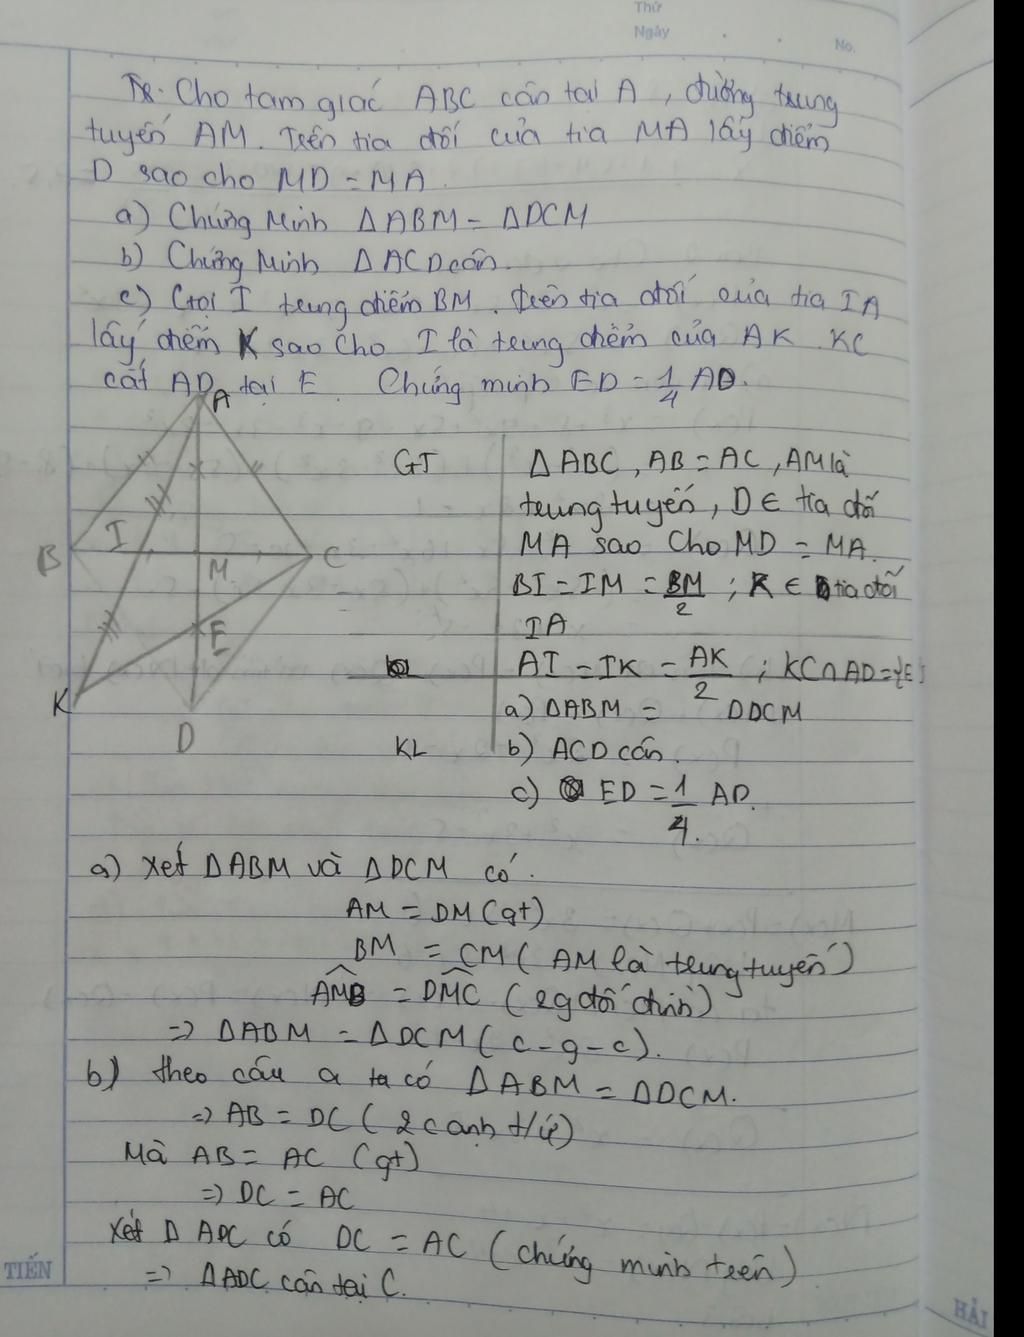 Thứ
Ngày
No.
Cho tam giác ABC cân tại A, đường trung
tuyến AM. Trên tia đối của tia MA lấy điểm
D sao cho MD = MA.
a) Chứng Minh ΔABM = ΔDCM
b) Chứng Minh ΔACD cân.
c) Gọi I trung điểm BM. Trên tia đối của tia IA
lấy điểm K sao cho I là trung điểm của AK. KC
cắt AD tại E. Chứng minh ED = 1/4 AD.
A
B
I
M
C
E
K
D
GT
ΔABC, AB = AC, AM là
trung tuyến, D ∈ tia đối
MA sao cho MD = MA.
BI = IM = BM/2 ; K ∈ tia đối
IA
AI = IK = AK/2 ; KC∩AD={E}
KL
a) ΔABM = DDCM
b) ACD cân.
c) ED = 1/4 AD.
a) Xét ΔABM và ΔDCM có.
AM = DM (gt)
BM = CM ( AM là trung tuyến)
AMB = DMC (2g đối đỉnh)
=> ΔABM = ΔDCM ( c-g-c).
b) theo câu a ta có ΔABM = ΔDCM.
=> AB = DC ( 2 cạnh t/ứ)
Mà AB = AC (gt)
=> DC = AC
Xét Δ ADC có DC = AC ( chứng minh trên)
=> ΔADC cân tại C.
TIẾN
HẢI